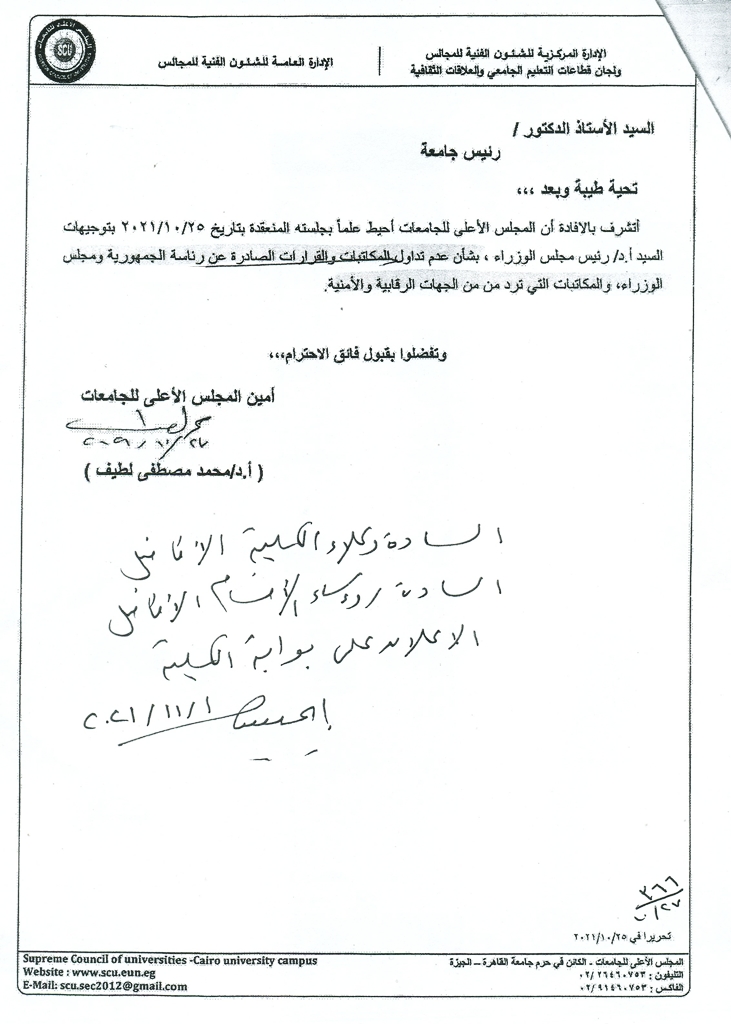 الإدارة المركزية للشئون الفنية للمجالس
ولجان قطاعات التعليم الجامعي والعلاقات الثقافية
الإدارة العامة للشئون الفنية للمجالس
SCU
السيد الأستاذ الدكتور /
رئيس جامعة
تحية طيبة وبعد ،،،
أتشرف بالافادة أن المجلس الأعلى للجامعات أحيط علماً بجلسته المنعقدة بتاريخ ٢٠٢١/١٠/٢٥ بتوجيهات
السيد أ.د/ رئيس مجلس الوزراء ، بشأن عدم تداول المكاتبات والقرارات الصادرة عن رئاسة الجمهورية ومجلس
الوزراء، والمكاتبات التي ترد من من الجهات الرقابية والأمنية.
وتفضلوا بقبول فائق الاحترام،،،
أمين المجلس الأعلى للجامعات
( أ.د/محمد مصطفى لطيف )
السادة وكلاء الكلية الأفاضل
السادة رؤساء الأقسام الأفاضل
الاعلان على بوابة الكلية
٢٠٢١/١١/١
٣٦٦
تحريرا في ٢٠٢١/١٠/٢٥
Supreme Council of universities -Cairo university campus
Website : www.scu.eun.eg
E-Mail: scu.sec2012@gmail.com
المجلس الأعلى للجامعات - الكائن في حرم جامعة القاهرة – الجيزة
التليفون : ٠٢/٢٦٤٦٠٧٥٣
الفاكس : ٠٢/٩١٤٦٠٧٥٣